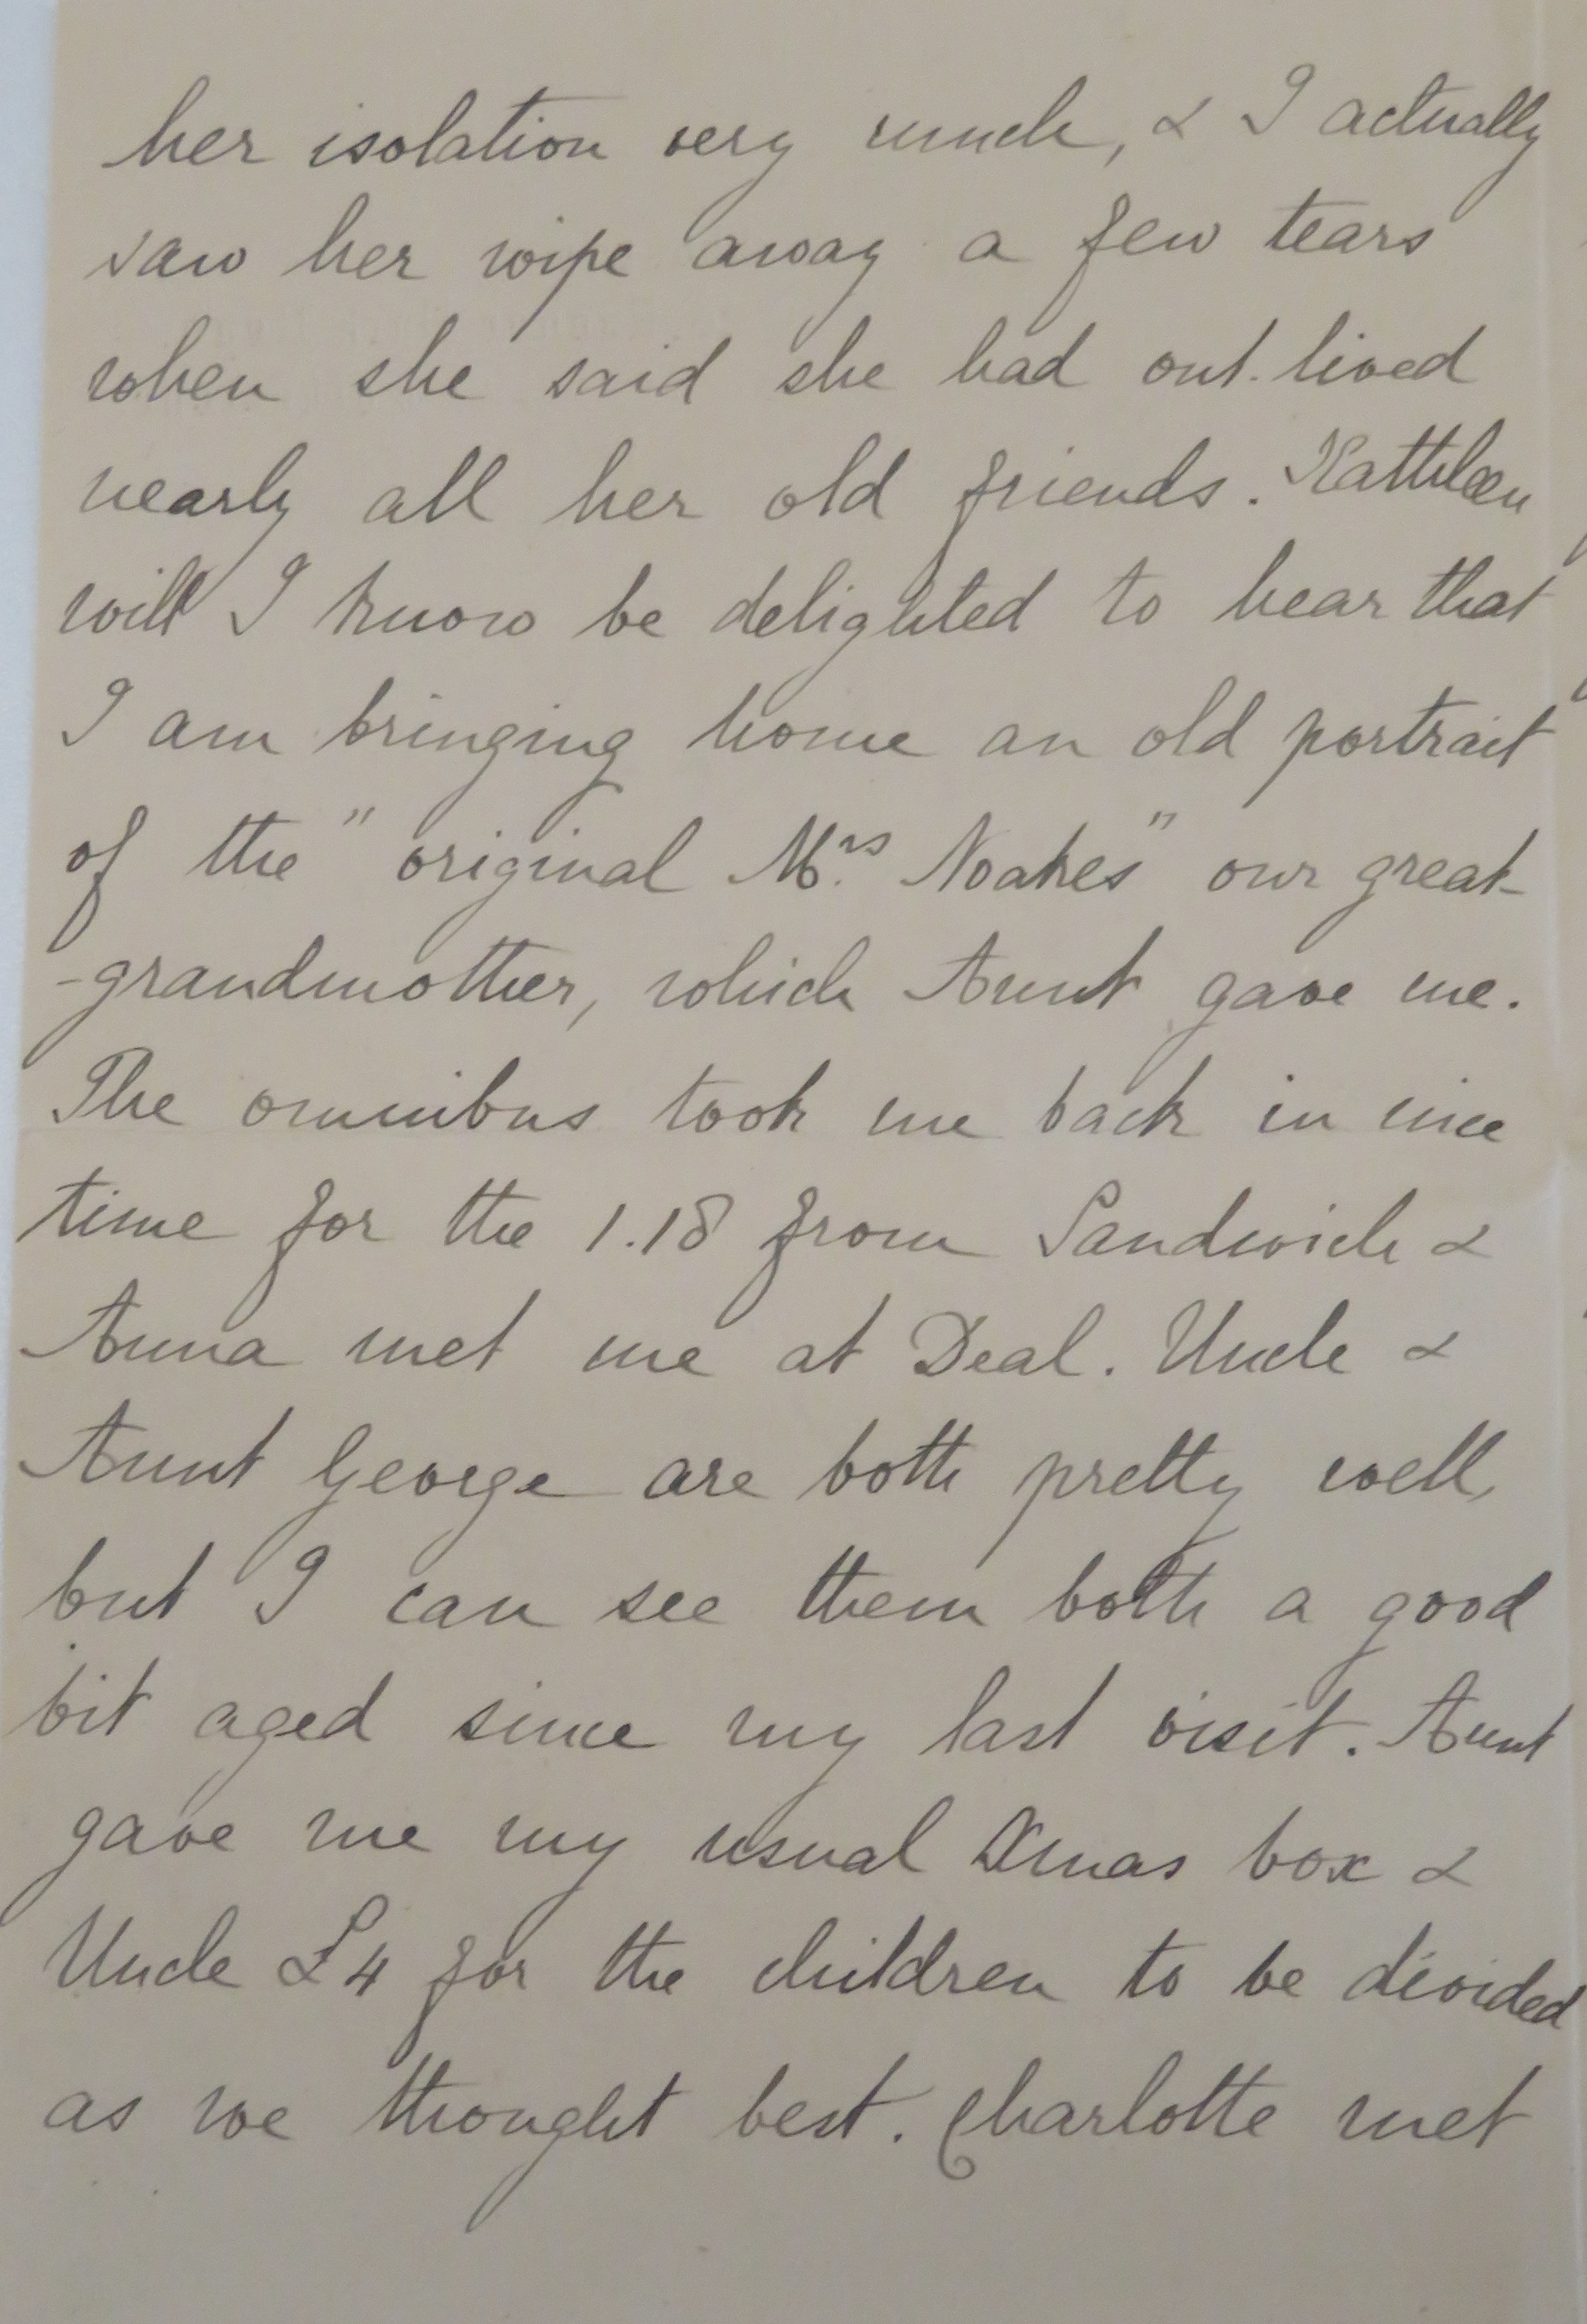 her isolation very much, & I actually
saw her wipe away a few tears
when she said she had out-lived
nearly all her old friends. Kathleen
will I know be delighted to hear that
I am bringing home an old portrait
of the "original Mrs Noakes" our great-
-grandmother, which Aunt gave me.
The omnibus took me back in nice
time for the 1.18 from Sandwich &
Anna met me at Deal. Uncle &
Aunt George are both pretty well,
but I can see them both a good
bit aged since my last visit. Aunt
gave me my usual Xmas box &
Uncle £4 for the children to be divided
as we thought best. Charlotte met